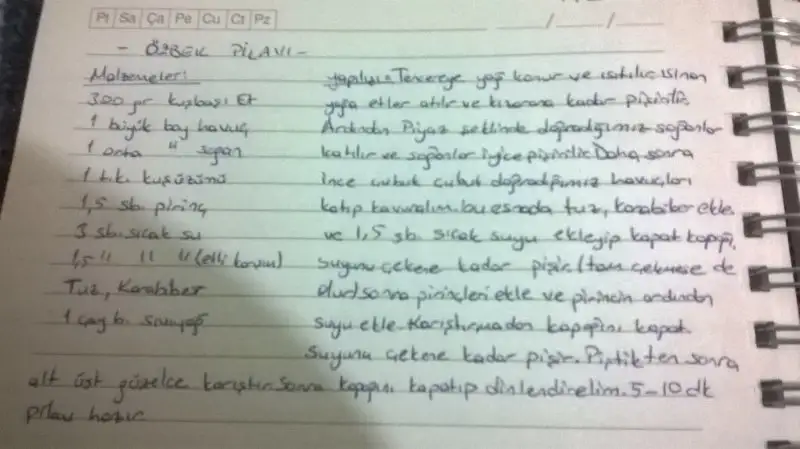 Pt Sa Ça Pe Cu Ct Pz
- ÖZBEK PİLAVI -
Malzemeler:
300 gr kuşbaşı Et
1 büyük boy havuç
1 orta " soğan
1 t.k. kuşüzümü
1,5 sb. pirinç
3 sb. sıcak su
1,5 " " " (etli karışım)
Tuz, Karabiber
1 çay b. sıvıyağ
yapılışı = Tencereye yağ konur ve ısıtılır ısınan
yağa etler atılır ve kızarana kadar pişirilir.
Ardından Piyaz şeklinde doğradığımız soğanlar
katılır ve soğanlar iyice pişirilir. Daha sonra
ince çubuk çubuk doğradığımız havuçları
katıp kavuralım. bu esnada tuz, karabiber ekle.
ve 1,5 sb. sıcak suyu ekleyip kapat kapağı,
suyunu çekene kadar pişir. (tam çekmese de
olur) sonra pirinçleri ekle ve pirincin ardından
suyu ekle. Karıştırmadan kapağını kapat.
suyunu çekene kadar pişir. Piştikten sonra
alt üst güzelce karıştır. Sonra kapağını kapatıp dinlendirelim. 5-10 dk
pilav hazır